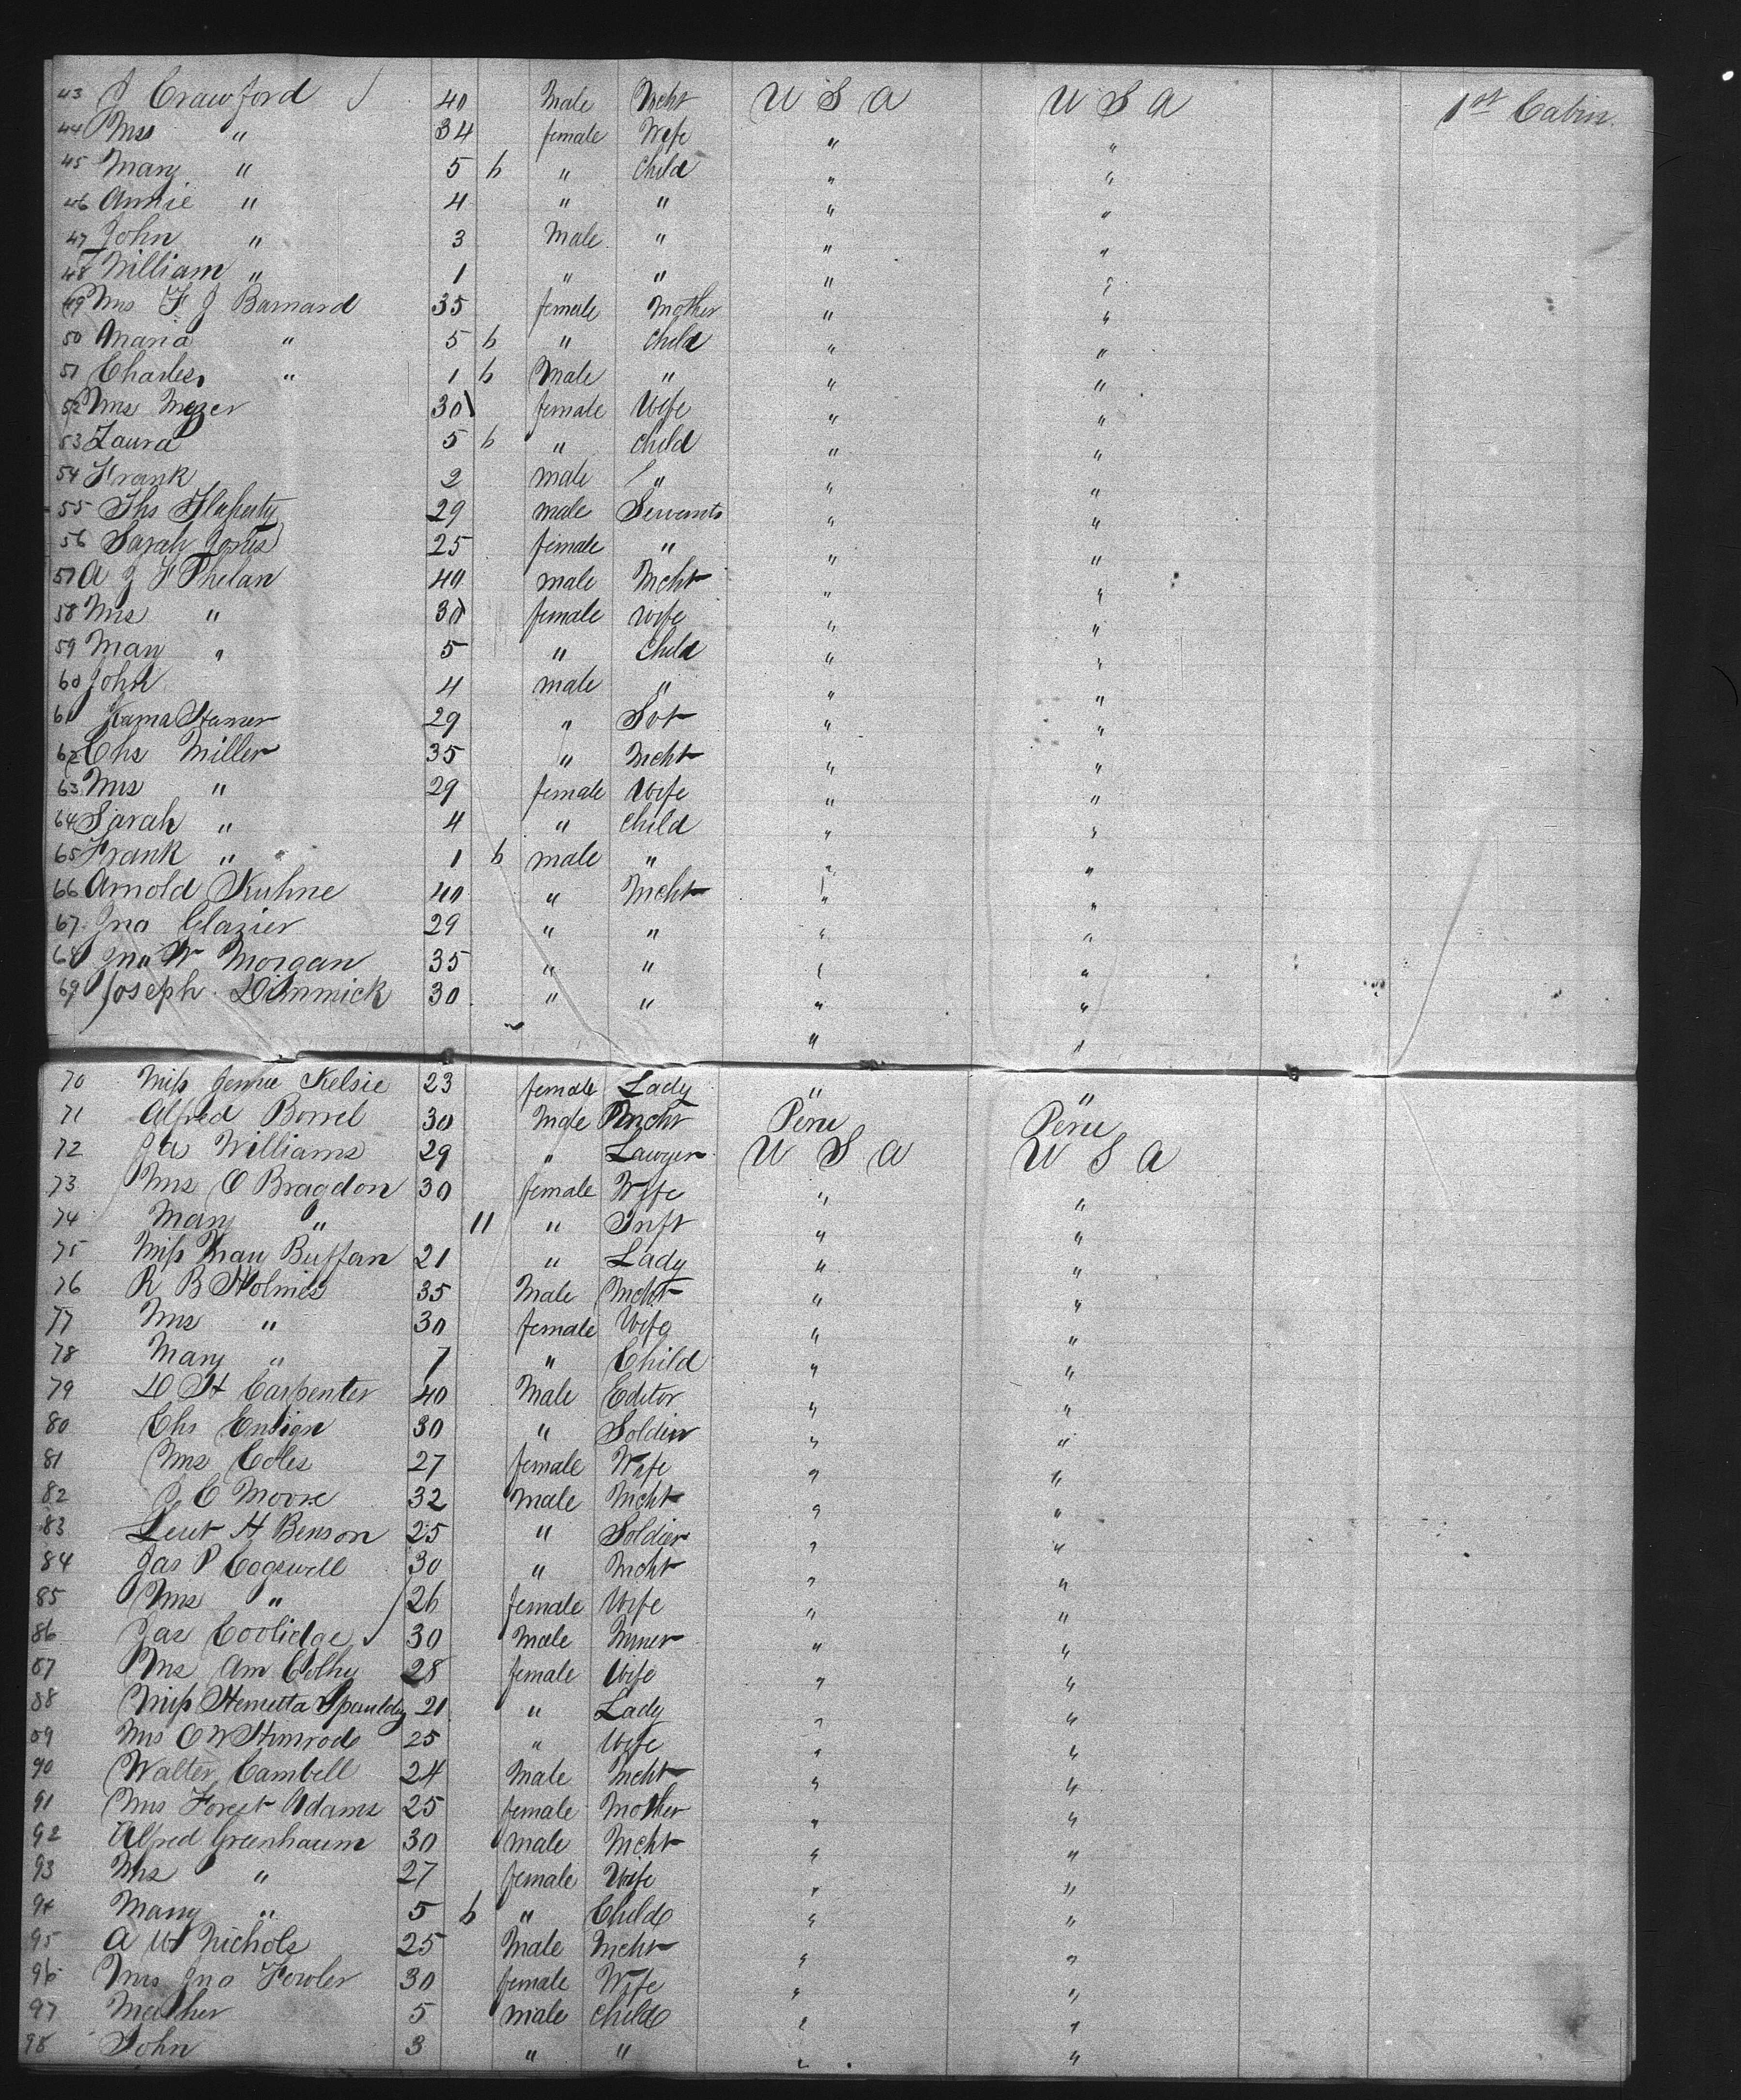 43 J Crawford 40 Male Mcht U S A U S A 1st Cabin
44 Mrs " 34 female Wife " "
45 Mary " 5 6 " Child " "
46 Annie " 4 " " " "
47 John " 3 Male " " "
48 William " 1 " " " "
49 Mrs F J Barnard 35 female Mother " "
50 Maria " 5 6 " Child " "
51 Charles " 1 6 Male " " "
52 Mrs 30 female Wife " "
53 Laura 5 6 " child " "
54 Frank 2 male " " "
55 Ths Flaherty 29 male Servants " "
56 Sarah Jones 25 female " " "
57 A J F Phelan 40 male Mcht " "
58 Mrs " 30 female wife " "
59 Mary " 5 " Child " "
60 John 4 male " " "
61 29 " " "
62 Chs Miller 35 " Mcht " "
63 Mrs " 29 female Wife " "
64 Sarah " 4 " Child " "
65 Frank " 1 6 male " " "
66 Arnold Kuhne 40 " Mcht " "
67 Jno Glazier 29 " " " "
68 Jno W Morgan 35 " " " "
69 Joseph Dimmick 30 " " " "
" "
70 Miss Jennie Kelsie 23 female Lady " "
71 Alfred Borrel 30 Male Mcht Peru Peru
72 Ja Williams 29 " Lawyer U S A U S A
73 Mrs O Bragdon 30 female Wife " "
74 Mary " 11 " Inft " "
75 Miss May Buffan 21 " Lady " "
76 R B Holmes 35 Male Mcht " "
77 Mrs " 30 female Wife " "
78 Mary " 7 " Child " "
79 D H Carpenter 40 Male Editor " "
80 Chs Ensign 30 " Soldier " "
81 Mrs Coles 27 female Wife " "
82 J E Moore 32 male Mcht " "
83 Leut H Benson 25 " Soldier " "
84 Jas P Cogswell 30 " Mcht " "
85 Mrs " 26 female Wife " "
86 Jas Coolidge 30 Male Miner " "
87 Mrs Am Colby 28 female Wife " "
88 Miss Henrietta Spaulding 21 " Lady " "
89 Mrs O W Himrode 25 " Wife " "
90 Walter Cambell 24 Male Mcht " "
91 Mrs Forest Adams 25 female Mother " "
92 Alfred Greenbaum 30 male Mcht " "
93 Mrs " 27 female Wife " "
94 Mary " 5 6 " Child " "
95 A W Nichols 25 Male Mcht " "
96 Mrs Jno Fowler 30 female Wife " "
97 5 male child " "
98 John 3 " " " "